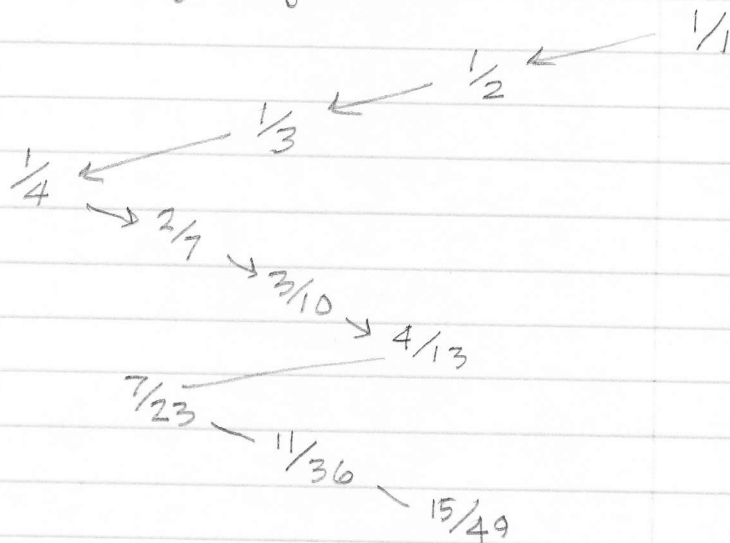 1/1
1/2
1/3
1/4
2/7
3/10
4/13
7/23
11/36
15/49